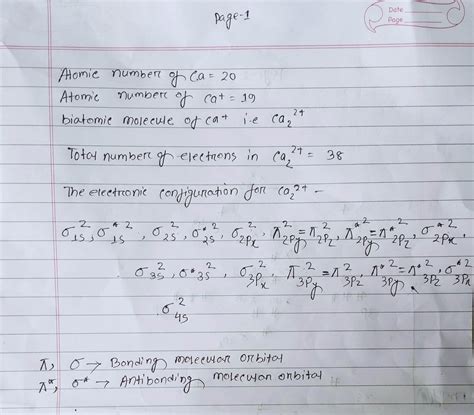 Page-1
Date
Page
Atomic number of Ca = 20
Atomic number of Ca+ = 19
biatomic molecule of Ca+ i.e Ca₂²⁺
Total number of electrons in Ca₂²⁺ = 38
The electronic configuration for Ca₂²⁺ -
σ1s², σ*1s², σ2s², σ*2s², σ2px², π2py²=π2pz², π*2py²=π*2pz², σ*2px²,
σ3s², σ*3s², σ3px², π3py²=π3pz², π*3py²=π*3pz², σ*3px²
σ4s²
π, σ → Bonding molecular orbital
π*, σ* → Antibonding molecular orbital